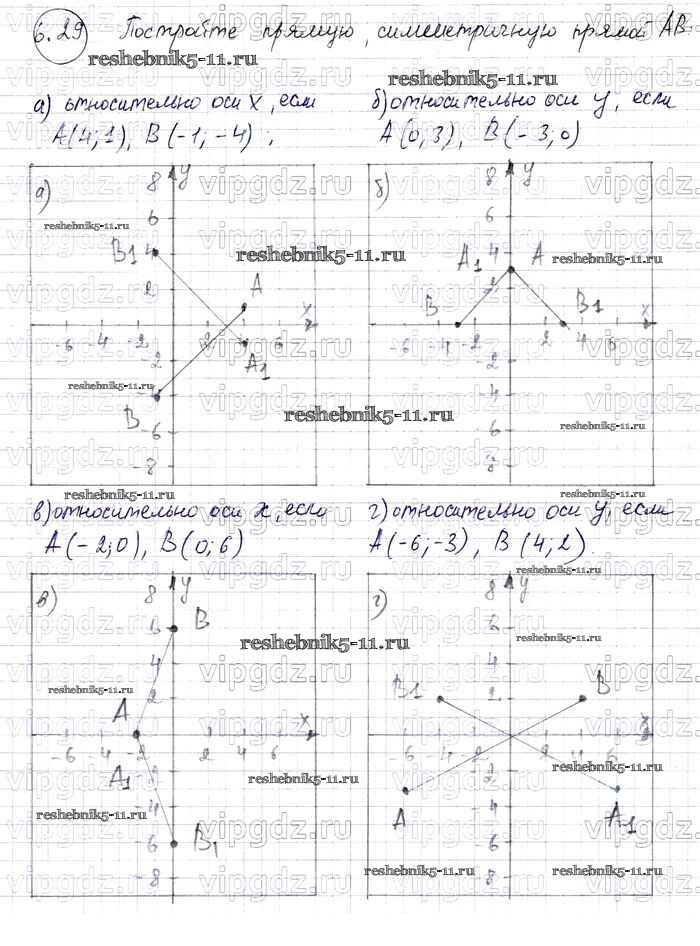 6.29 Постройте прямую, симметричную прямой AB.
reshebnik5-11.ru
reshebnik5-11.ru
а) относительно оси x, если
A(4;1), B(-1;-4);
б) относительно оси y, если
A(0;3), B(-3;0)
а)
8 y
6
4
2
-6 -4 -2 2 4 6 x
-2
-4
-6
-8
B1
A
A1
B
reshebnik5-11.ru
reshebnik5-11.ru
reshebnik5-11.ru
reshebnik5-11.ru
reshebnik5-11.ru
б)
8 y
6
4
2
-6 -4 -2 2 4 6 x
-2
-4
-6
-8
A1 A
B B1
reshebnik5-11.ru
reshebnik5-11.ru
reshebnik5-11.ru
в) относительно оси x, если
A(-2;0), B(0;6)
г) относительно оси y, если
A(-6;-3), B(4;2).
reshebnik5-11.ru
в)
8 y
6 B
4
2
A
-6 -4 -2 2 4 6 x
-2
A1
-4
-6 B1
-8
reshebnik5-11.ru
reshebnik5-11.ru
reshebnik5-11.ru
reshebnik5-11.ru
г)
8 y
6
4
2
B1 B
-6 -4 -2 2 4 6 x
-2
-4
-6
-8
A A1
reshebnik5-11.ru
reshebnik5-11.ru
reshebnik5-11.ru
vipgdz.ru